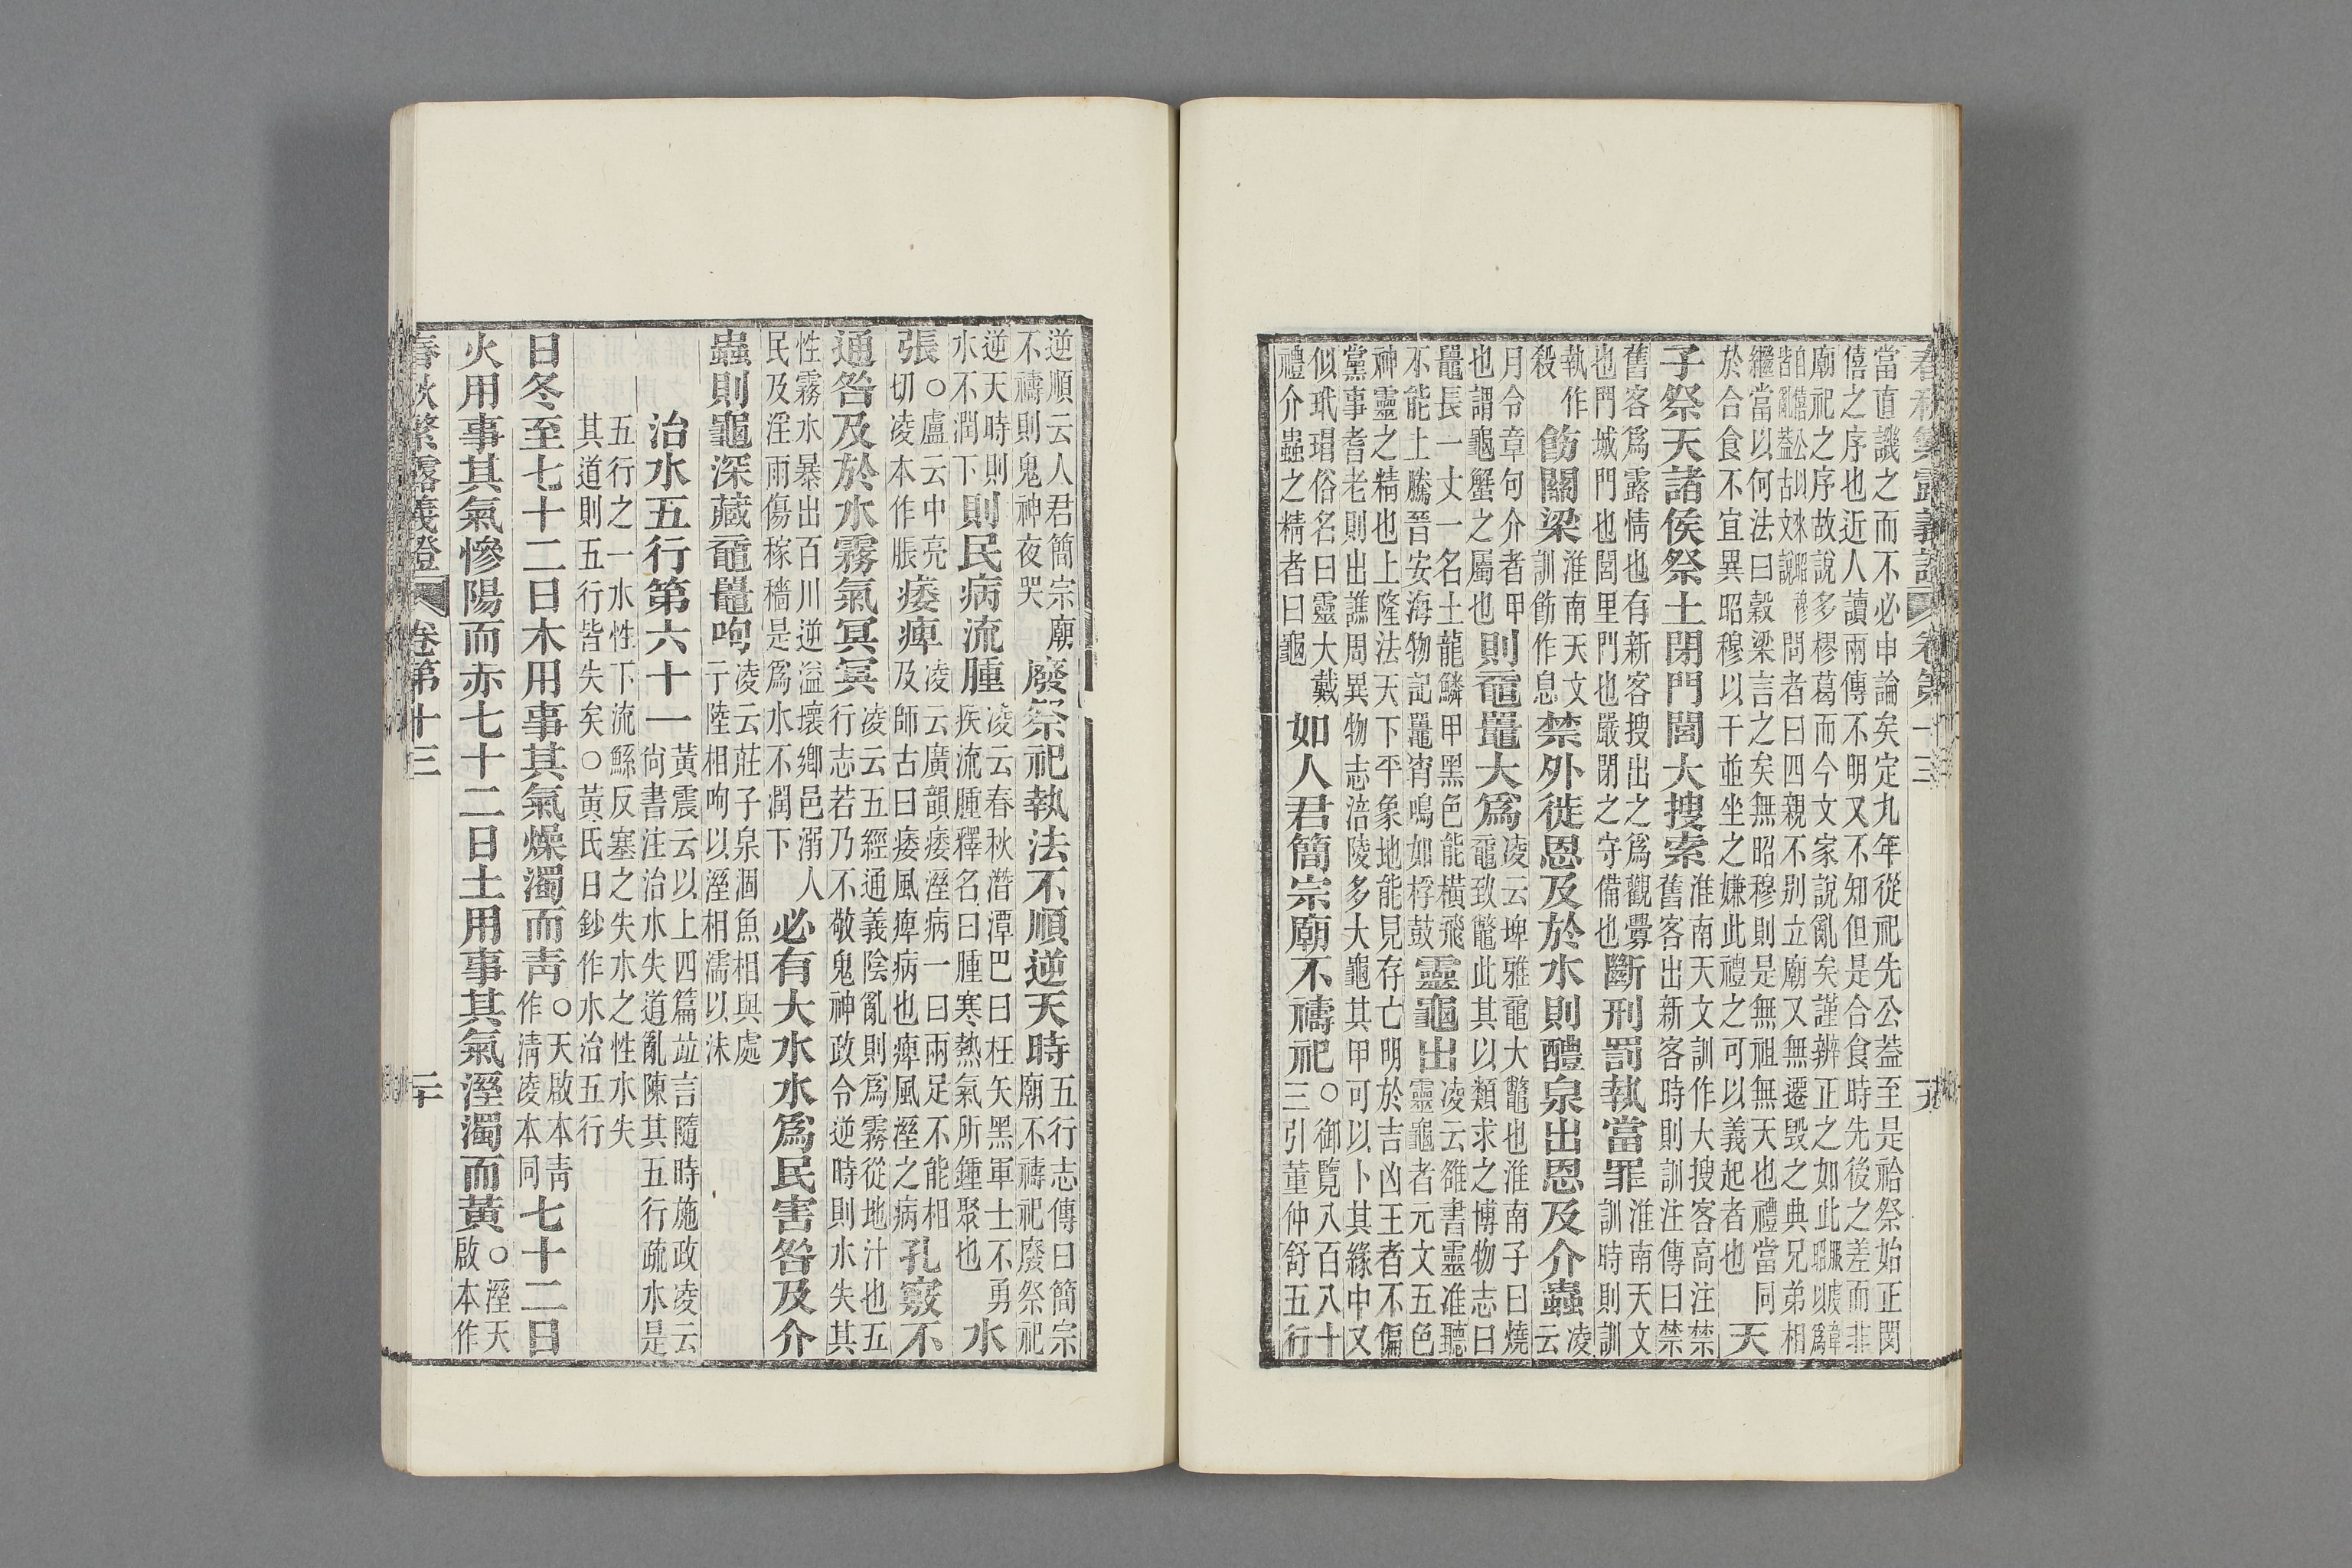 春秋繁露義證 卷第十三 十九
當直譏之而不必申論矣定九年從祀先公葢至是祫祭始正閔
僖之序也近人讀兩傳不明又不知但是合食時先後之差而非
廟祀之序故說多樛葛而今文家說亂矣謹辨正之如此
自僖公以來昭穆
皆亂葢古文說
問者曰四親不別立廟又無遷毀之典兄弟相
繼當以何法曰穀梁言之矣無昭穆則是無祖無天也禮當同
於合食不宜異昭穆以干並坐之嫌此禮之可以義起者也天
子祭天諸侯祭土閉門閭大搜索
淮南天文訓作大搜客高注禁
舊客出新客時則訓注傳曰禁
舊客爲露情也有新客搜出之爲觀釁
也門城門也閭里門也嚴閉之守備也
斷刑罰執當罪
淮南天文
訓時則訓
執作
殺
飭關梁
淮南天文
訓飭作息
禁外徙恩及於水則醴泉出恩及介蟲
凌
云
月令章句介者甲
也謂龜蟹之屬也
則黿鼉大爲
凌云埤雅黿大鼈也淮南子曰燒
黿致鼈此其以類求之博物志曰
鼉長一丈一名土龍鱗甲黑色能橫飛
不能上騰晉安海物記鼉宵鳴如桴鼓
靈龜出
凌云雒書靈准聽
靈龜者元文五色
神靈之精也上隆法天下平象地能見存亡明於吉凶王者不偏
黨事耆老則出譙周異物志涪陵多大龜其甲可以卜其緣中又
似玳瑁俗名曰靈大戴
禮介蟲之精者曰龜
如人君簡宗廟不禱祀
○御覽八百八十
三引董仲舒五行
逆順云人君簡宗廟
不禱則鬼神夜哭
廢祭祀執法不順逆天時
五行志傳曰簡宗
廟不禱祀廢祭祀
逆天時則
水不潤下
則民病流腫
凌云春秋潛潭巴曰枉矢黑軍士不勇
疾流腫釋名曰腫寒熱氣所鍾聚也
水
張
○盧云中亮
切凌本作脹
痿痺
凌云廣韻痿溼病一曰兩足不能相
及師古曰痿風痺病也痺風溼之病
孔竅不
通咎及於水霧氣冥冥
凌云五經通義陰亂則爲霧從地汁也五
行志若乃不敬鬼神政令逆時則水失其
性霧水暴出百川逆溢壞鄉邑溺人
民及淫雨傷稼穡是爲水不潤下
必有大水水爲民害咎及介
蟲則龜深藏黿鼉呴
凌云莊子泉涸魚相與處
于陸相呴以溼相濡以沫
治水五行第六十一
黃震云以上四篇竝言隨時施政凌云
尚書注治水失道亂陳其五行疏水是
五行之一水性下流鯀反塞之失水之性水失
其道則五行皆失矣○黃氏日鈔作水治五行
日冬至七十二日木用事其氣燥濁而靑
○天啟本靑
作淸凌本同
七十二日
火用事其氣慘陽而赤七十二日土用事其氣溼濁而黃
○溼天
啟本作
春秋繁露義證 卷第十三 二十